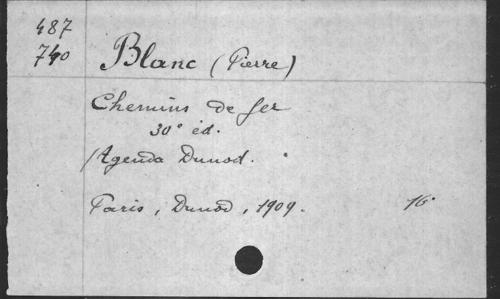 487
740
Blanc (Pierre)
Chemins de fer
30e éd.
(Agenda Dunod.
Paris, Dunod, 1909. 16°